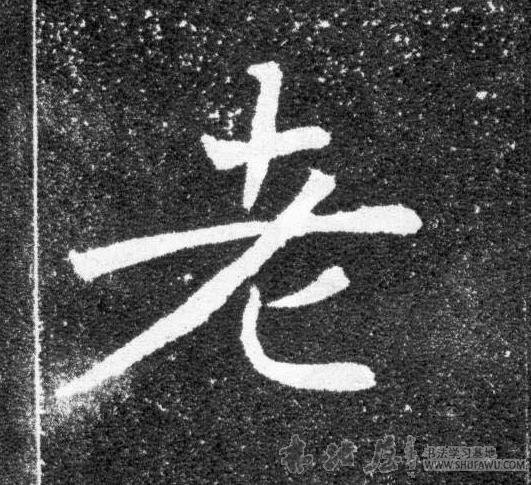 老
书法学习基地
WWW.SHUFAWU.COM